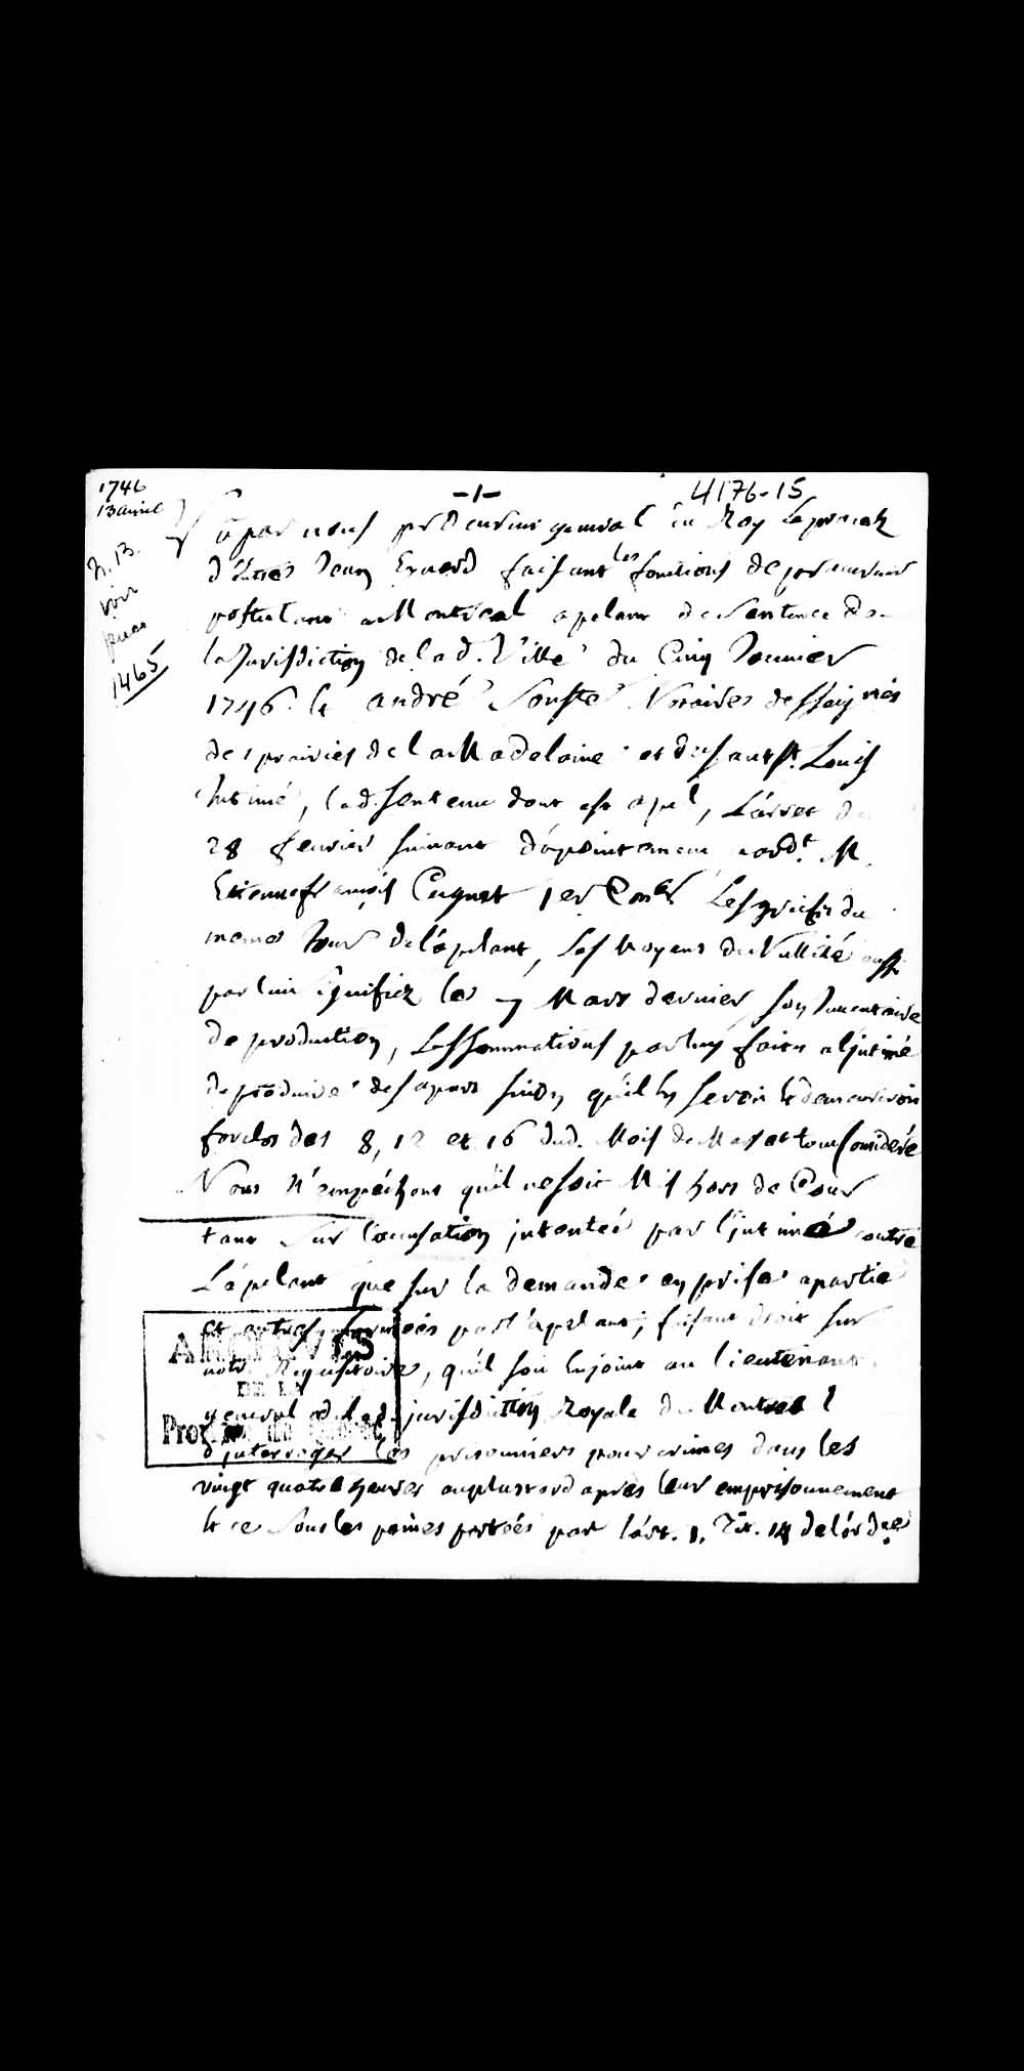 1746
13 avril
-1-
4176-15
N. B.
voir
piece
1465
Vû par nous procureur general du Roy Le procez
d'Entre Jean Erverd faisant les fonctions de procureur
postulant a Montreal apelant de Sentence de
la Jurisdiction de lad. Ville du Cinq Janvier
1746. et andré Souste Notaire des seigries
des prairies de la Madelaine et du saut st. Louis
Intimé, lad. sentence dont est apel, L'arret du
28 fevrier suivant d'apointement M.
Etienne françois Cugnet 1er Coner Les griefs du
meme Jour de l'apelant, Ses Moyens de Nullité aussi
par lui signifiez le Mars dernier son Inventaire
de production, Les sommations par luy faites a l'jntimé
de produire de sa part sinon qu'il en seroit et demeureroit
forclos des 8, 12 et 16 dud. Mois de Mars et tout Consideré
Nous N'empéchons qu'il ne soit Mis hors de Cour
tant Sur l'accusation jntentée par l'jntimé contre
L'apelant que sur la demande en prise a partie
et par l'apelant; faisant droit sur
notre Requisitoire, qu'il soit Enjoint au lieutenant
general de lad. jurisdiction Royale de Montreal
d'jnterroger les prisonniers pour crimes dans les
vingt quatre heures au plus tard apres leur emprisonnement
et ce Sous les peines portées par l'art. 1. Tit. 14 de l'ordce
ARCHIVES
DE LA
Province de Québec